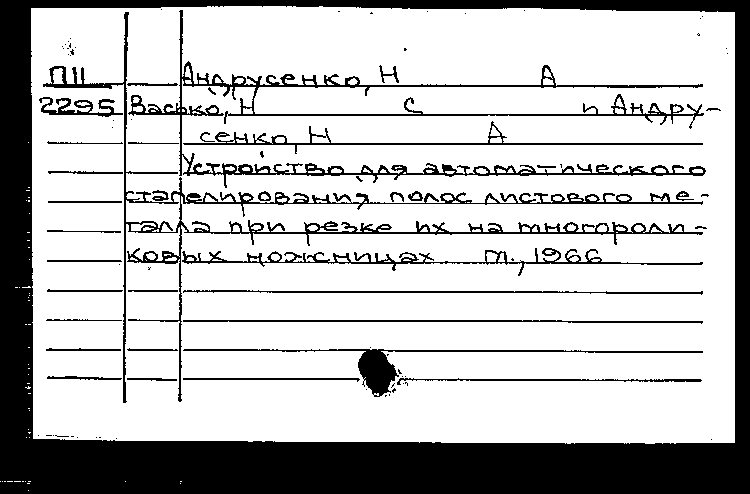 П11 Андрусенко, Н А
2295 Васько, Н С и Андру-
сенко, Н А
Устройство для автоматического
стапелирования полос листового ме-
талла при резке их на многороли-
ковых ножницах. М., 1966